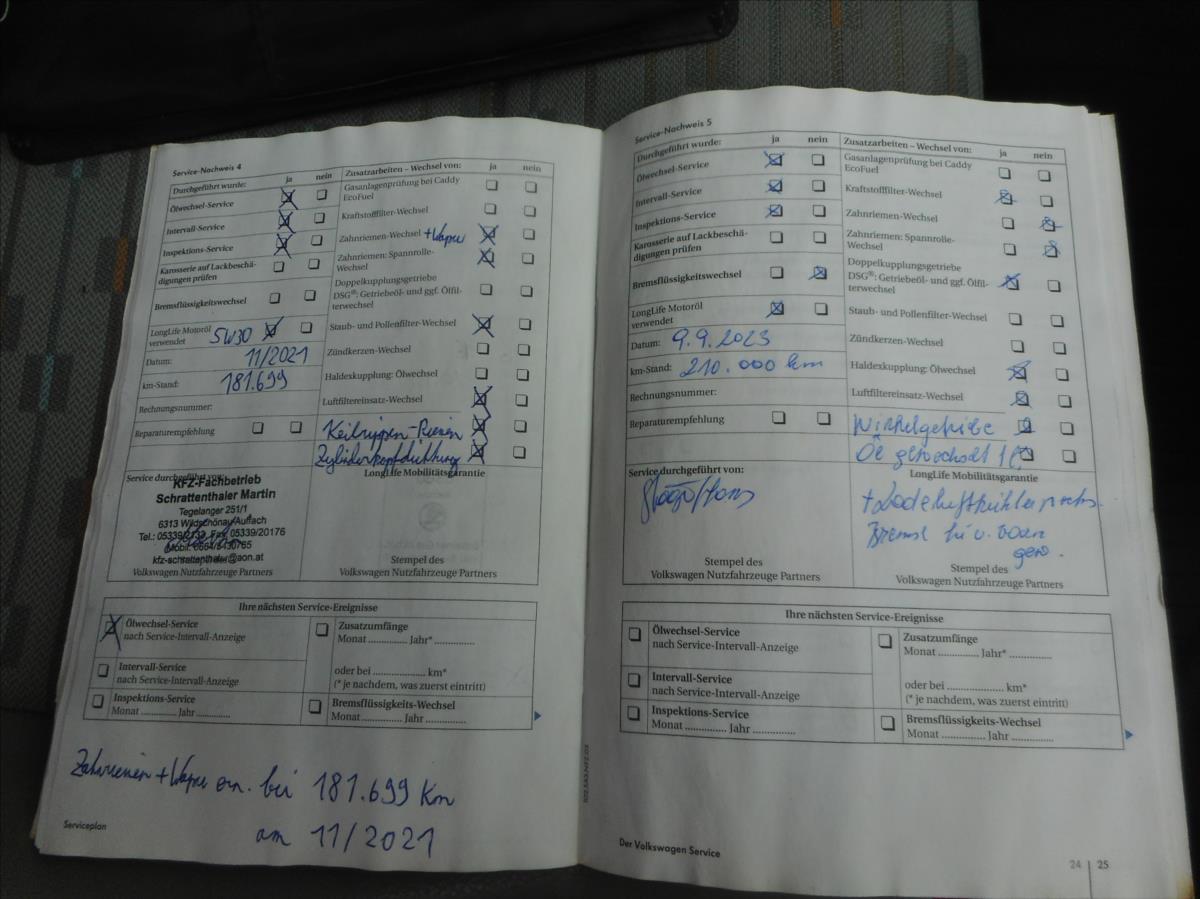 Service-Nachweis 4
Durchgeführt wurde: ja nein
Ölwechsel-Service
Intervall-Service
Inspektions-Service
Karosserie auf Lackbeschä-
digungen prüfen
Bremsflüssigkeitswechsel
LongLife Motoröl
verwendet 5W30
Datum: 11/2021
km-Stand: 181.699
Rechnungsnummer:
Reparaturempfehlung
Zusatzarbeiten – Wechsel von: ja nein
Gasanlagenprüfung bei Caddy
EcoFuel
Kraftstofffilter-Wechsel
Zahnriemen-Wechsel + Wapu
Zahnriemen: Spannrolle-
Wechsel
Doppelkupplungsgetriebe
DSG®: Getriebeöl- und ggf. Ölfil-
terwechsel
Staub- und Pollenfilter-Wechsel
Zündkerzen-Wechsel
Haldexkupplung: Ölwechsel
Luftfiltereinsatz-Wechsel
Keilrippen-Riemen
Zylinderkopfdichtung
Service durchgeführt von:
KFZ-Fachbetrieb
Schrattenthaler Martin
Tegelanger 251/1
6313 Wildschönau/Auffach
Tel.: 05339/2732, Fax. 05339/20176
Mobil:
kfz-schrattenthaler@aon.at
Volkswagen Nutzfahrzeuge Partners
LongLife Mobilitätsgarantie
Stempel des
Volkswagen Nutzfahrzeuge Partners
Ihre nächsten Service-Ereignisse
Ölwechsel-Service
nach Service-Intervall-Anzeige
Intervall-Service
nach Service-Intervall-Anzeige
Inspektions-Service
Monat ............ Jahr ............
Zusatzumfänge
Monat ............ Jahr* ............
oder bei .................. km*
(* je nachdem, was zuerst eintritt)
Bremsflüssigkeits-Wechsel
Monat ............ Jahr ............
Zahnriemen + Wapu ern. bei 181.699 Km
am 11/2021
Serviceplan
Service-Nachweis 5
Durchgeführt wurde: ja nein
Ölwechsel-Service
Intervall-Service
Inspektions-Service
Karosserie auf Lackbeschä-
digungen prüfen
Bremsflüssigkeitswechsel
LongLife Motoröl
verwendet
Datum: 9.9.2023
km-Stand: 210.000 km
Rechnungsnummer:
Reparaturempfehlung
Zusatzarbeiten – Wechsel von: ja nein
Gasanlagenprüfung bei Caddy
EcoFuel
Kraftstofffilter-Wechsel
Zahnriemen-Wechsel
Zahnriemen: Spannrolle-
Wechsel
Doppelkupplungsgetriebe
DSG®: Getriebeöl- und ggf. Ölfil-
terwechsel
Staub- und Pollenfilter-Wechsel
Zündkerzen-Wechsel
Haldexkupplung: Ölwechsel
Luftfiltereinsatz-Wechsel
Winkelgetriebe
Öl gewechselt
Service durchgeführt von:
Stempel des
Volkswagen Nutzfahrzeuge Partners
LongLife Mobilitätsgarantie
+ Ladeluftkühler
Brems hi u. vorn
gew.
Stempel des
Volkswagen Nutzfahrzeuge Partners
Ihre nächsten Service-Ereignisse
Ölwechsel-Service
nach Service-Intervall-Anzeige
Intervall-Service
nach Service-Intervall-Anzeige
Inspektions-Service
Monat ............ Jahr ............
Zusatzumfänge
Monat ............ Jahr* ............
oder bei .................. km*
(* je nachdem, was zuerst eintritt)
Bremsflüssigkeits-Wechsel
Monat ............ Jahr ............
Der Volkswagen Service
24 | 25